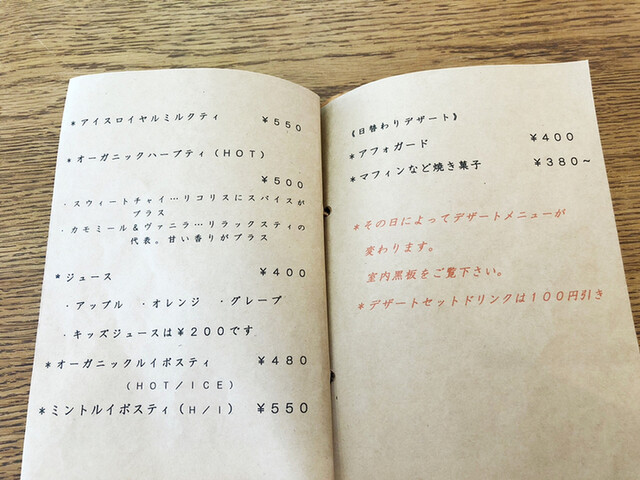 *アイスロイヤルミルクティ ￥５５０
*オーガニックハーブティ（ＨＯＴ）
￥５００
・スウィートチャイ…リコリスにスパイスが
プラス
・カモミール＆ヴァニラ…リラックスティの
代表。甘い香りがプラス
*ジュース ￥４００
・アップル ・オレンジ ・グレープ
・キッズジュースは￥２００です
*オーガニックルイボスティ ￥４８０
（ＨＯＴ／ＩＣＥ）
*ミントルイボスティ（Ｈ／Ｉ） ￥５５０
《日替わりデザート》
*アフォガード ￥４００
*マフィンなど焼き菓子 ￥３８０～
*その日によってデザートメニューが
変わります。
室内黒板をご覧下さい。
*デザートセットドリンクは１００円引き